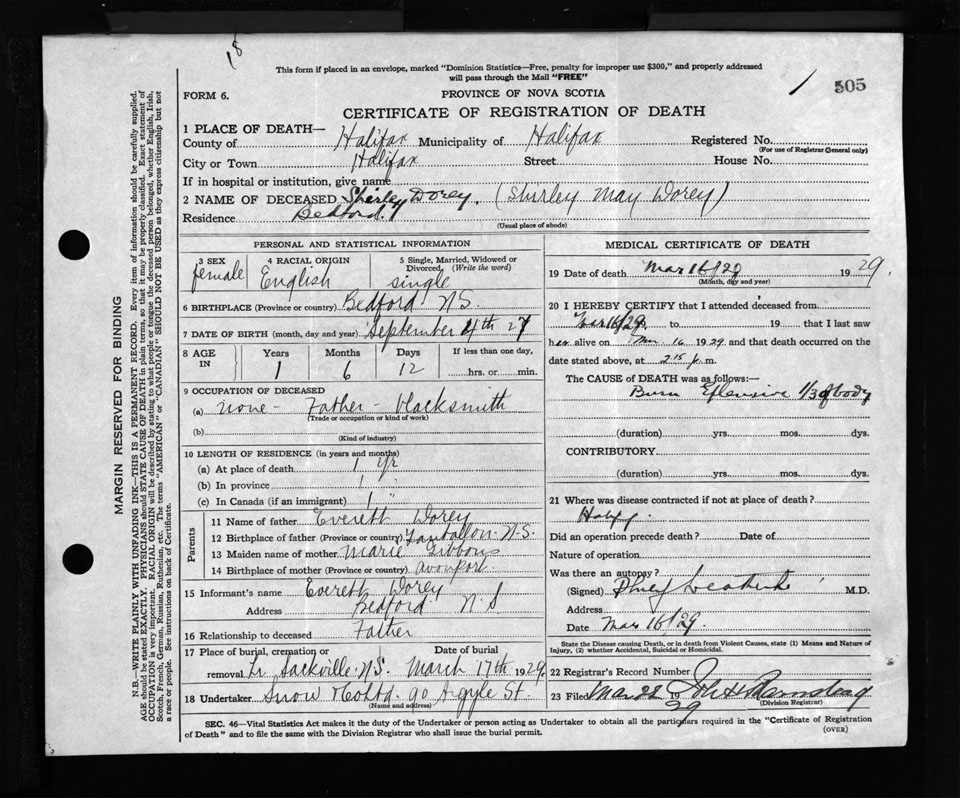 18
This form if placed in an envelope, marked "Dominion Statistics—Free, penalty for improper use $300," and properly addressed
will pass through the Mail "FREE"
1 505
FORM 6. PROVINCE OF NOVA SCOTIA
CERTIFICATE OF REGISTRATION OF DEATH
1 PLACE OF DEATH—
County of Halifax Municipality of Halifax Registered No.
(For use of Registrar General only)
City or Town Halifax Street House No.
If in hospital or institution, give name
2 NAME OF DECEASED Shirley Dorey. (Shirley May Dorey)
Residence Bedford.
(Usual place of abode)
PERSONAL AND STATISTICAL INFORMATION
3 SEX 4 RACIAL ORIGIN 5 Single, Married, Widowed or
Divorced, (Write the word)
female English single
6 BIRTHPLACE (Province or country) Bedford N.S.
7 DATE OF BIRTH (month, day and year) September 4th 27
8 AGE IN Years Months Days If less than one day,
1 6 12 hrs. or min.
9 OCCUPATION OF DECEASED
(a) none - Father blacksmith
(Trade or occupation or kind of work)
(b)
(Kind of industry)
10 LENGTH OF RESIDENCE (in years and months)
(a) At place of death 1 yr
(b) In province 1 "
(c) In Canada (if an immigrant) 1 "
Parents
11 Name of father Everett Dorey
12 Birthplace of father (Province or country) Tantallon N.S.
13 Maiden name of mother Marie Gibbons
14 Birthplace of mother (Province or country) Avonport.
15 Informant's name Everett Dorey
Address Bedford N S
16 Relationship to deceased Father
17 Place of burial, cremation or Date of burial
removal Lr. Sackville N.S. March 17th 1929
18 Undertaker Snow & Co Ltd. 90 Argyle St.
(Name and address)
MEDICAL CERTIFICATE OF DEATH
19 Date of death Mar 16/29 1929.
(Month, day and year)
20 I HEREBY CERTIFY that I attended deceased from
Mar 16/29, to 19 that I last saw
her alive on Mar 16 1929 and that death occurred on the
date stated above, at 2.15 p. m.
The CAUSE OF DEATH was as follows:—
Burn 1/3 of body
(duration) yrs. mos. dys.
CONTRIBUTORY
(duration) yrs. mos. dys.
21 Where was disease contracted if not at place of death?
Did an operation precede death? Date of
Nature of operation
Was there an autopsy?
(Signed) M.D.
Address
Date Mar 16/29.
State the Disease causing Death, or in death from Violent Causes, state (1) Means and Nature of
Injury, (2) whether Accidental, Suicidal or Homicidal.
22 Registrar's Record Number
23 Filed Mar 22 19 29
(Division Registrar)
SEC. 46—Vital Statistics Act makes it the duty of the Undertaker or person acting as Undertaker to obtain all the particulars required in the "Certificate of Registration
of Death" and to file the same with the Division Registrar who shall issue the burial permit.
(OVER)
MARGIN RESERVED FOR BINDING
N.B.—WRITE PLAINLY WITH UNFADING INK—THIS IS A PERMANENT RECORD. Every item of information should be carefully supplied.
AGE should be stated EXACTLY. PHYSICIANS should STATE CAUSE OF DEATH in plain terms, so that it may be properly classified. Exact statement of
OCCUPATION is very important. RACIAL ORIGIN will be described by stating to what people or tongue the deceased person belonged, whether English, Irish,
Scotch, French, German, Russian, Ruthenian, etc. The terms "AMERICAN" or "CANADIAN" SHOULD NOT BE USED as they express citizenship but not
a race or people. See instructions on back of Certificate.